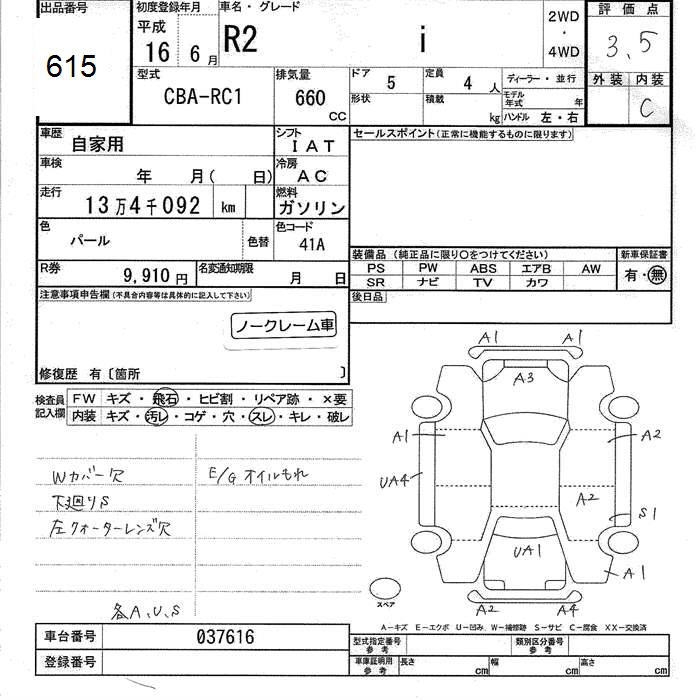 出品番号 初度登録年月 車名・グレード 評価点
615
平成 16 6月 R2 i 2WD・4WD 3.5
型式 排気量 ドア 定員 ディーラー・並行 外装 内装
CBA-RC1 660 CC 5 4 人 C
形状 積載 kg モデル年式 年
ハンドル 左・右
車歴 自家用 シフト IAT セールスポイント(正常に機能するものに限ります)
車検 年 月( 日) 冷房 AC
走行 13万4千092 km 燃料 ガソリン
色 パール 色替 色コード 41A
装備品(純正品に限り○をつけてください) 新車保証書
PS PW ABS エアB AW 有・無
SR ナビ TV カワ
R券 9,910円 名変通知期限 月 日 後日品
注意事項申告欄(不具合内容等は具体的に記入して下さい)
ノークレーム車
修復歴 有〔箇所 〕
検査員記入欄 FW キズ・飛石・ヒビ割・リペア跡・×要
内装 キズ・汚レ・コゲ・穴・スレ・キレ・破レ
Wカバー欠 E/Gオイルもれ
下廻りS
左クォーターレンズ欠
各A、U、S
A1 A1
A3
A1 A2
UA4
A2
S1
UA1
A1
スペア
A2 A4
A-キズ E-エクボ U-凹み W-補修跡 S-サビ C-腐食 XX-交換済
車台番号 037616 型式指定番号 参考 類別区分番号 参考
登録番号 車庫証明用 参考 長さ cm 幅 cm 高さ cm